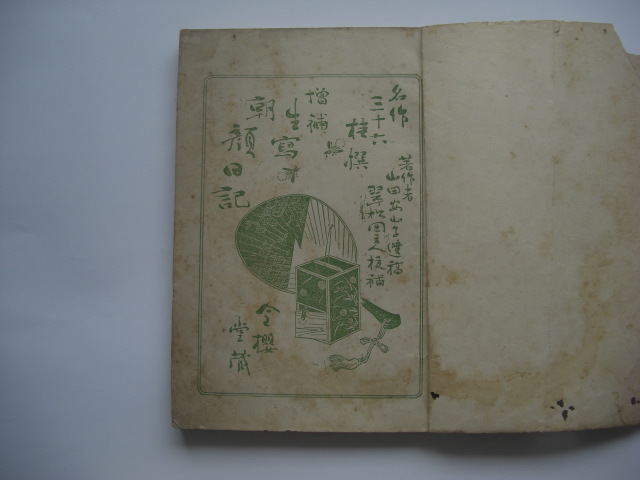 名作
三十六
佳撰
著作者
山田案山子遺稿
翠松園主人校補
増補
生寫
朝
顔日記
金櫻
堂蔵